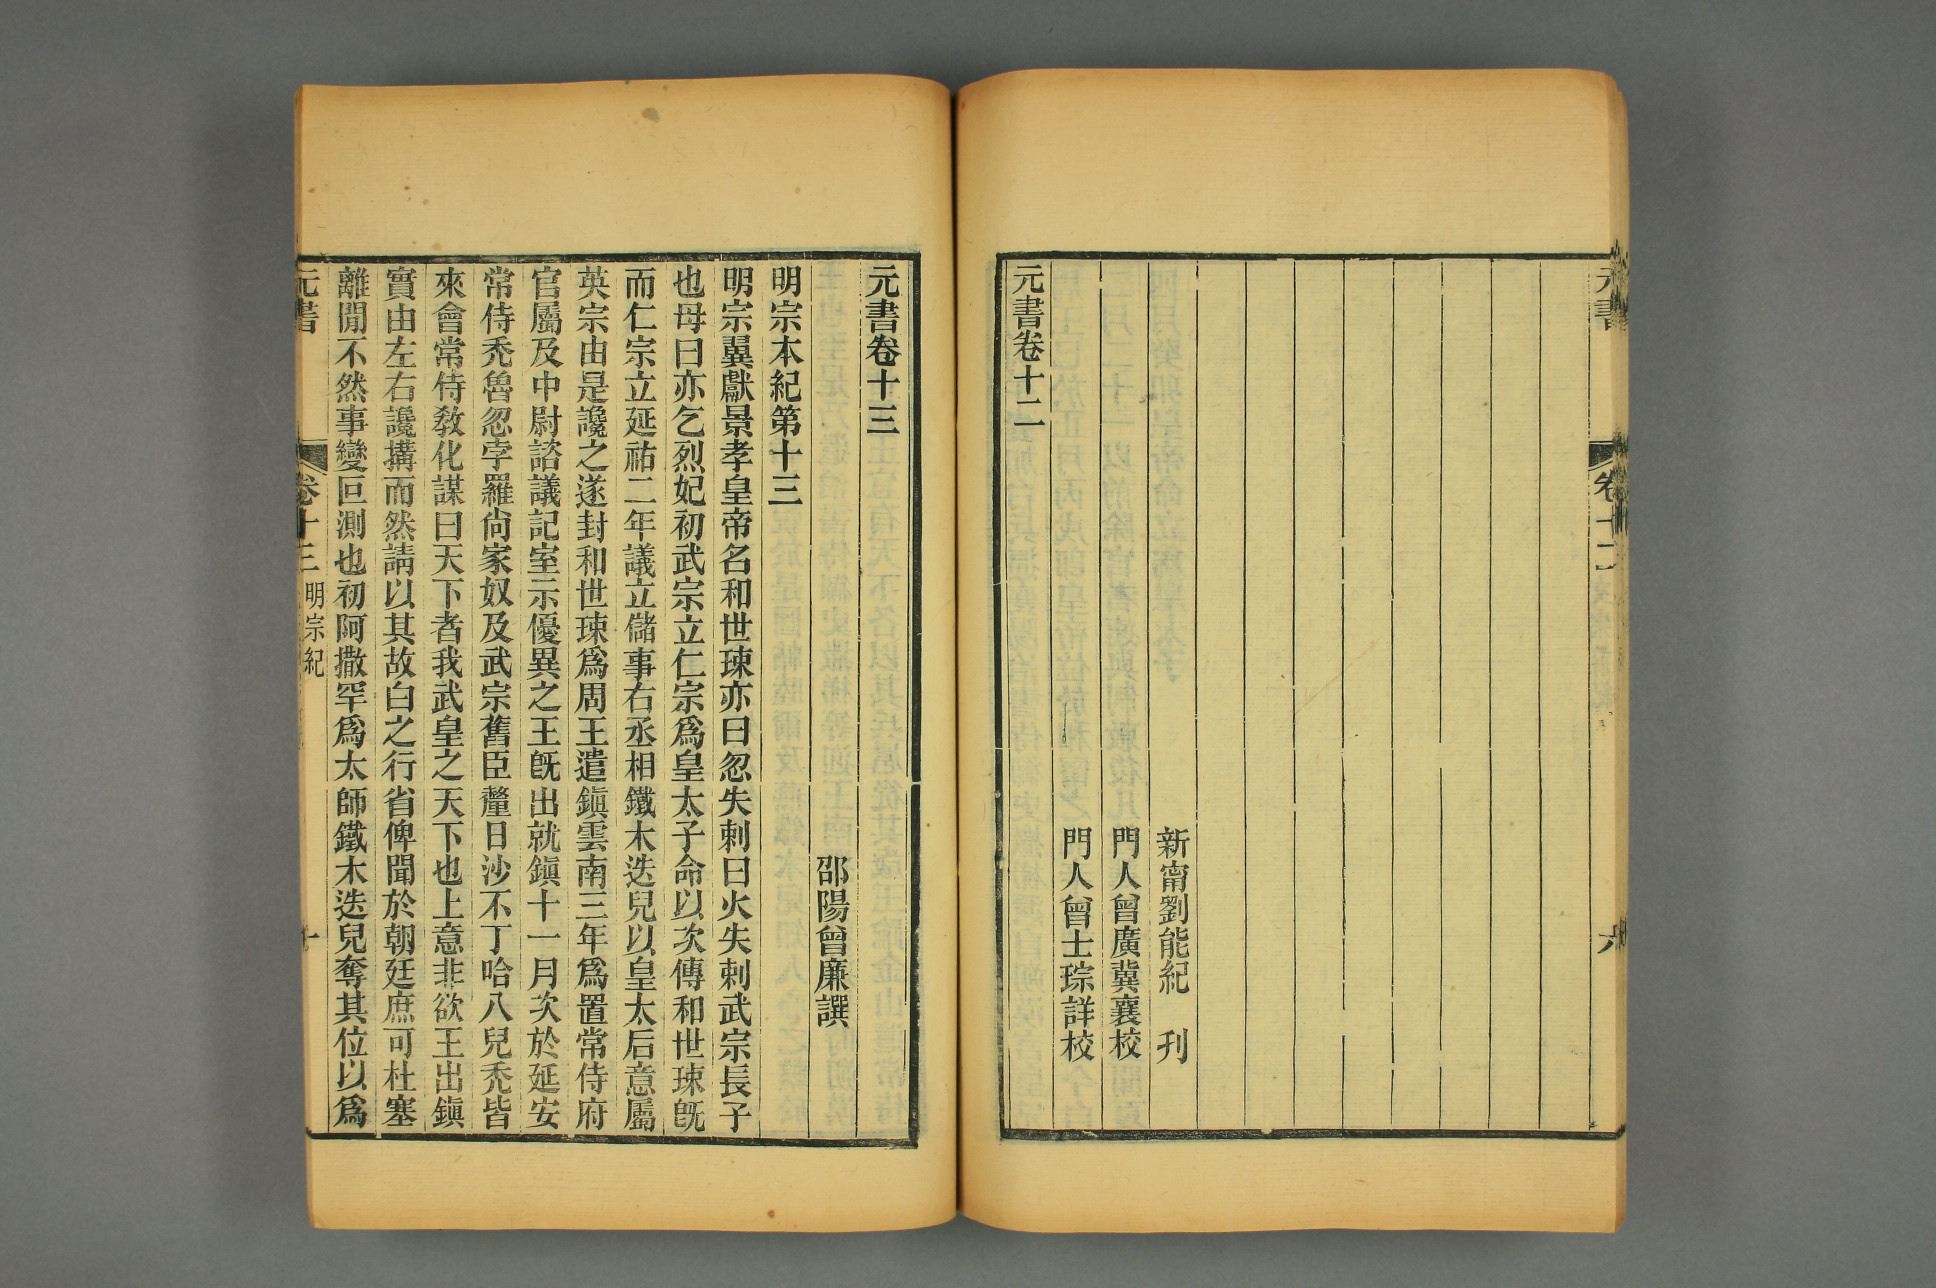 元書
卷十二
六
新甯劉能紀 刋
門人曾廣冀襄校
門人曾士琮詳校
元書卷十二
元書卷十三
邵陽曾廉譔
明宗本紀第十三
明宗翼獻景孝皇帝名和世㻋亦曰忽失剌曰火失剌武宗長子
也母曰亦乞烈妃初武宗立仁宗爲皇太子命以次傳和世㻋旣
而仁宗立延祐二年議立儲事右丞相鐵木迭兒以皇太后意屬
英宗由是讒之遂封和世㻋爲周王遣鎭雲南三年爲置常侍府
官屬及中尉諮議記室示優異之王旣出就鎭十一月次於延安
常侍禿魯忽孛羅尙家奴及武宗舊臣釐日沙不丁哈八兒禿皆
來會常侍敎化謀曰天下者我武皇之天下也上意非欲王出鎭
實由左右讒搆而然請以其故白之行省俾聞於朝廷庶可杜塞
離閒不然事變叵測也初阿撒罕爲太師鐵木迭兒奪其位以爲
元書
卷十三
明宗紀
一